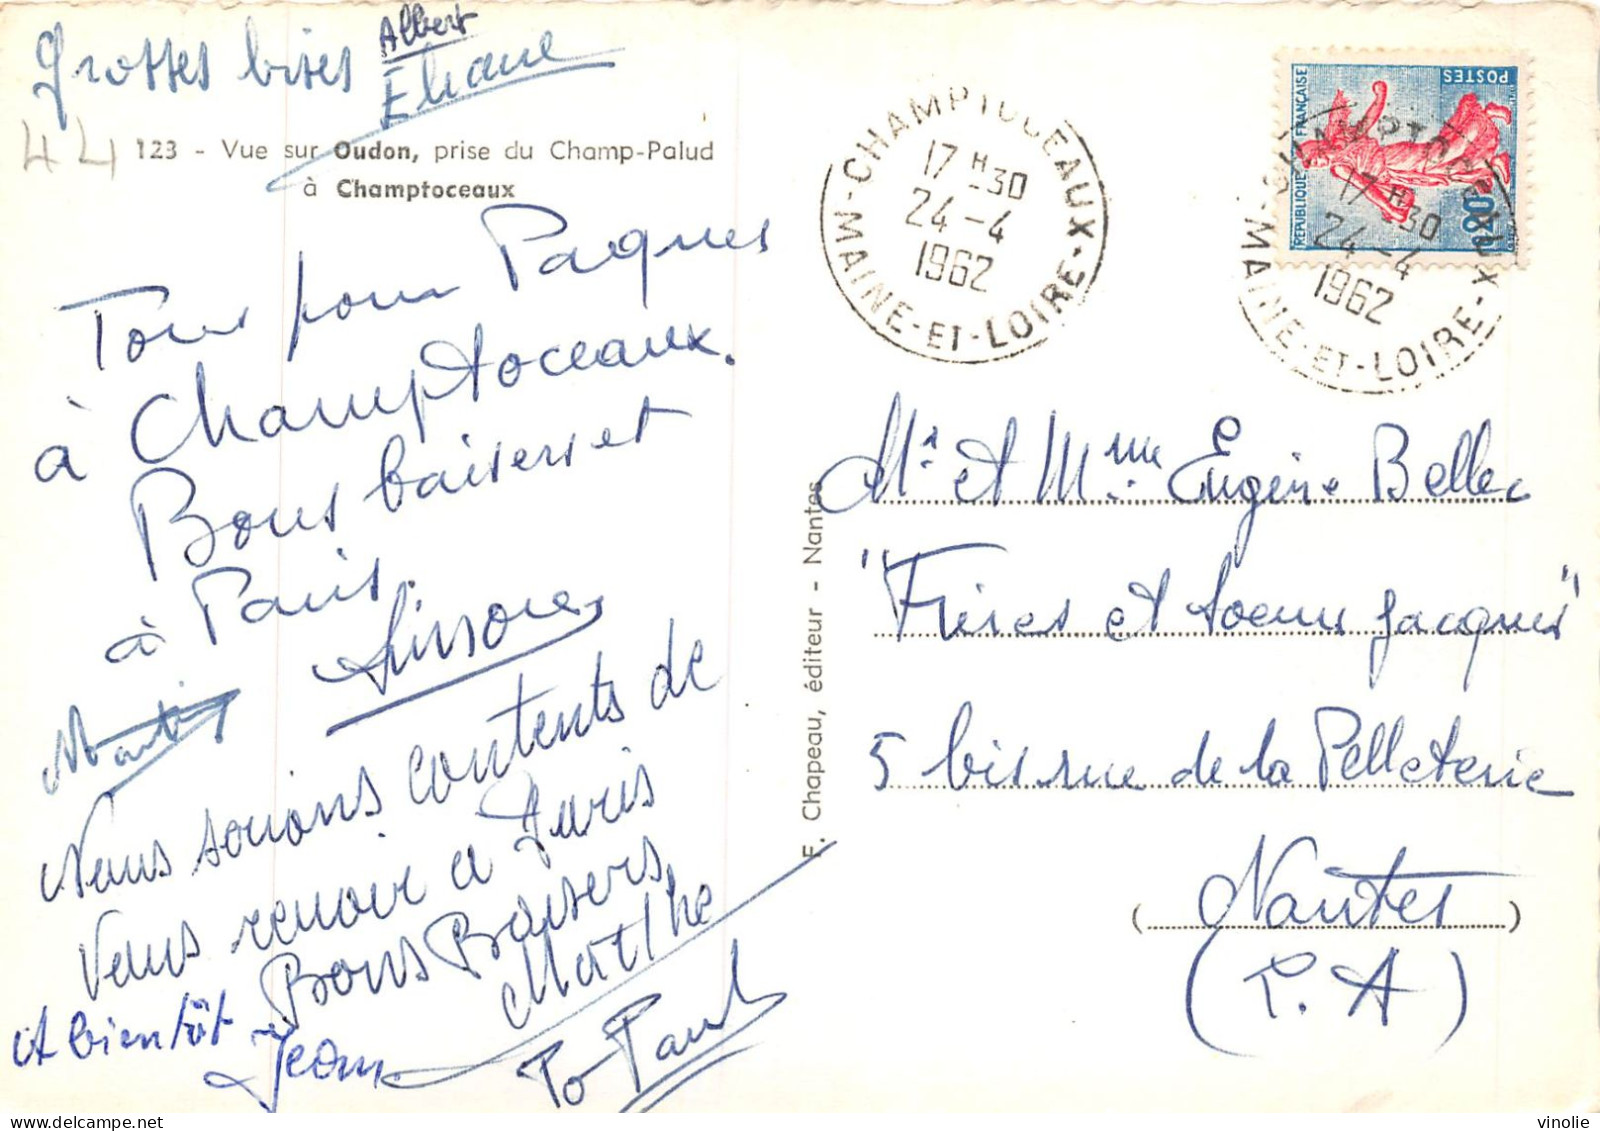 Grosses bises Albert
Eliane
44
123 - Vue sur Oudon, prise du Champ-Palud
à Champtoceaux
Tous pour Paques
à Champtoceaux.
Bons baisers et
à Paris.
Nous serions contents de
Vous revoir à Paris
Bons Baisers
Marthe
A bientôt Jean
To-Paul
F. Chapeau, éditeur - Nantes
CHAMPTOCEAUX
17 H 30
24-4
1962
MAINE-ET-LOIRE
POSTES
REPUBLIQUE FRANÇAISE
CHAMPTOCEAUX
17 H 30
24-4
1962
MAINE-ET-LOIRE
Mr et Mme Eugène Bellec
"Frères et Soeurs Jacques"
5 bis rue de la Pelleterie
(Nantes)
(L.A)
vinolie